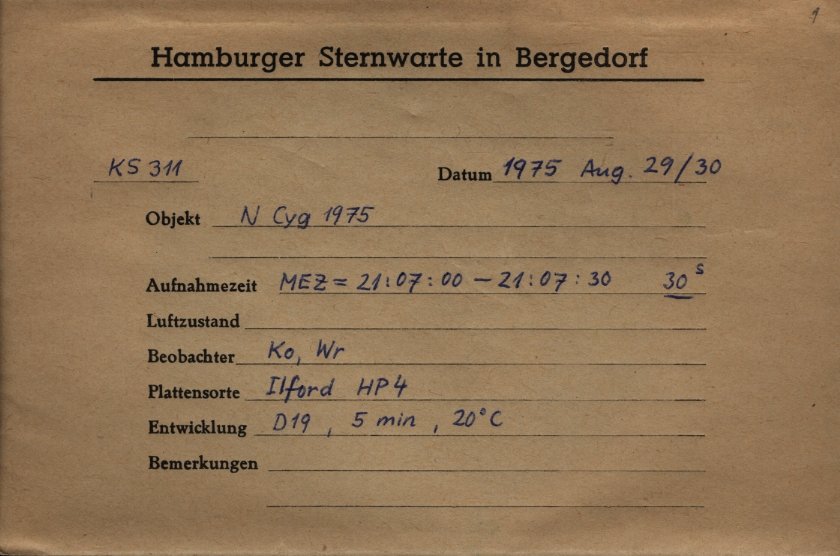 Hamburger Sternwarte in Bergedorf
KS 311 Datum 1975 Aug. 29/30
Objekt N Cyg 1975
Aufnahmezeit MEZ = 21:07:00 – 21:07:30 30s
Luftzustand
Beobachter Ko, Wr
Plattensorte Ilford HP4
Entwicklung D19, 5 min, 20°C
Bemerkungen